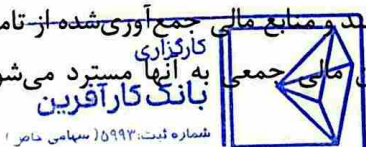 ند و منابع مالی جمع‌آوری‌شده از تام
کارگزاری
مالی جمعی به آنها مسترد می‌شو
بانک کارآفرین
شماره ثبت:۵۹۹۳ (سهامی خاص)